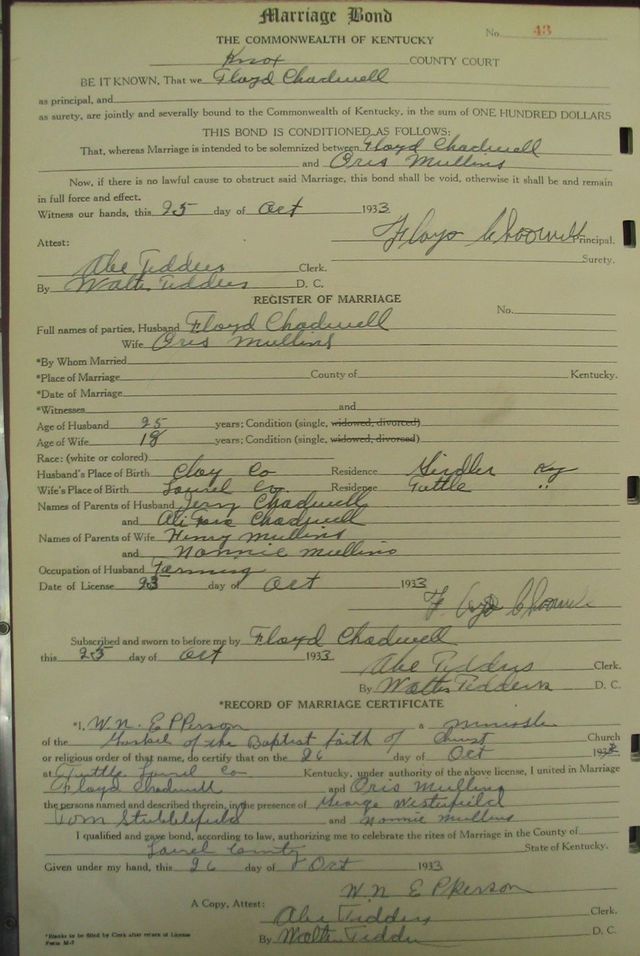 Marriage Bond
No. 43
THE COMMONWEALTH OF KENTUCKY
Knox COUNTY COURT
BE IT KNOWN, That we Floyd Chadwell
as principal, and
as surety, are jointly and severally bound to the Commonwealth of Kentucky, in the sum of ONE HUNDRED DOLLARS
THIS BOND IS CONDITIONED AS FOLLOWS:
That, whereas Marriage is intended to be solemnized between Floyd Chadwell
and Oris Mullins
Now, if there is no lawful cause to obstruct said Marriage, this bond shall be void, otherwise it shall be and remain
in full force and effect.
Witness our hands, this 25 day of Oct 1933
Floyd Chadwell Principal.
Attest: Surety.
Abe Tidders Clerk.
By Walter Tidders D. C.
REGISTER OF MARRIAGE
No.
Full names of parties, Husband Floyd Chadwell
Wife Oris Mullins
*By Whom Married
*Place of Marriage County of Kentucky.
*Date of Marriage
*Witnesses and
Age of Husband 25 years; Condition (single, widowed, divorced)
Age of Wife 18 years; Condition (single, widowed, divorced)
Race: (white or colored)
Husband's Place of Birth Clay Co Residence Girdler Ky
Wife's Place of Birth Laurel Co. Residence Tuttle "
Names of Parents of Husband Jerry Chadwell
and Chadwell
Names of Parents of Wife Henry Mullins
and Nannie Mullins
Occupation of Husband Farming
Date of License 25 day of Oct 1933
Floyd Chadwell
Subscribed and sworn to before me by Floyd Chadwell
this 25 day of Oct 1933
Abe Tidders Clerk.
By Walter Tidders D. C.
*RECORD OF MARRIAGE CERTIFICATE
*I, W. N. EPPerson a Minister
of the Gospel of the Baptist faith of Christ Church
or religious order of that name, do certify that on the 26 day of Oct 1933
at Tuttle Laurel Co Kentucky, under authority of the above license, I united in Marriage
Floyd Chadwell and Oris Mullins
the persons named and described therein, in the presence of George Westerfield
Tom Stubblefield and Nannie Mullins
I qualified and gave bond, according to law, authorizing me to celebrate the rites of Marriage in the County of
Laurel County State of Kentucky.
Given under my hand, this 26 day of Oct 1933
W. N. EPPerson
A Copy, Attest:
Abe Tidders Clerk.
By Walter Tidder D. C.
*Blanks to be filled by Clerk after return of License
Form M-7